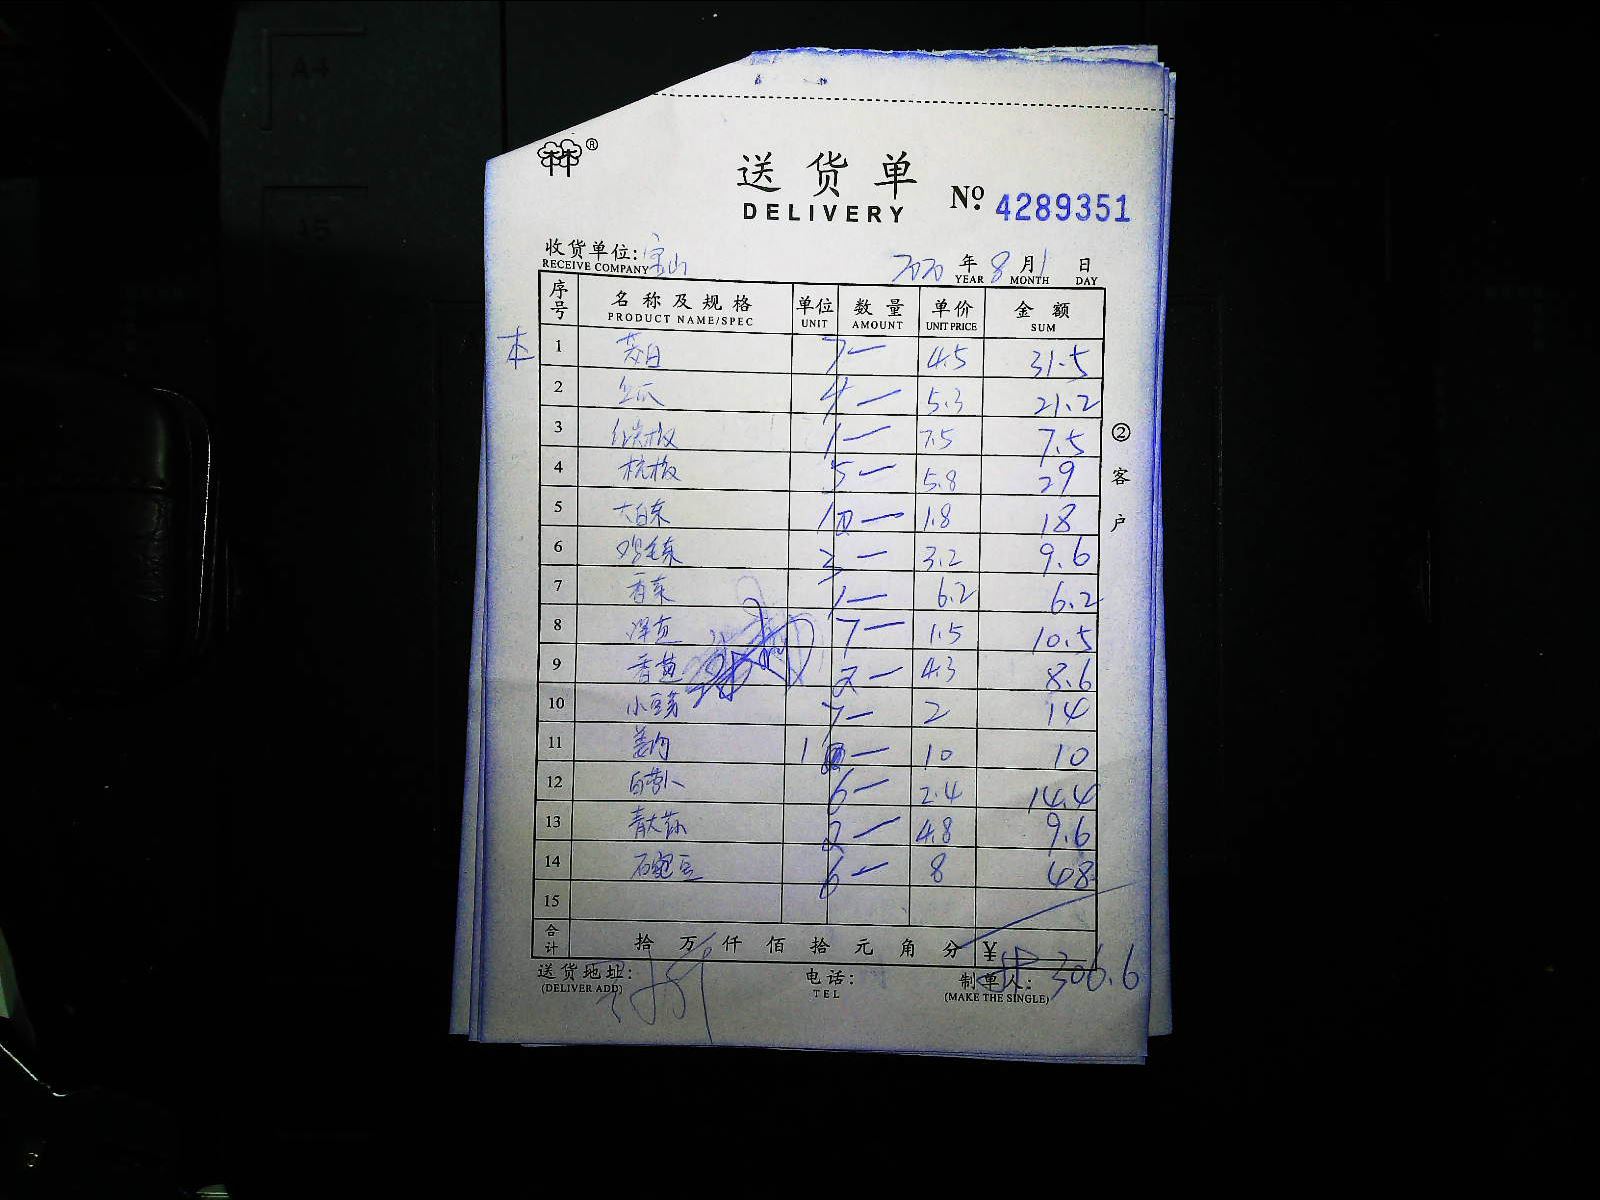 A4
A5
林®
送货单
DELIVERY
№ 4289351
收货单位: 宝山
RECEIVE COMPANY
2020 年 8 月 1 日
YEAR MONTH DAY
序号 名称及规格 单位 数量 单价 金额
PRODUCT NAME/SPEC UNIT AMOUNT UNIT PRICE SUM
本 1 茭白 7— 4.5 31.5
2 4— 5.3 21.2
3 红尖椒 1— 7.5 7.5
4 杭椒 5— 5.8 29
5 大白菜 10— 1.8 18
6 鸡毛菜 3— 3.2 9.6
7 香菜 1— 6.2 6.2
8 洋芋 7— 1.5 10.5
9 香葱 2— 4.3 8.6
10 小豆芽 7— 2 14
11 姜肉 1 — 10 10
12 白萝卜 6— 2.4 14.4
13 青大蒜 2— 4.8 9.6
14 豆 6— 8 48
15
合计 拾 万 仟 佰 拾 元 角 分 ¥ 306.6
送货地址: 电话: 制单人:
(DELIVER ADD) TEL (MAKE THE SINGLE)
②客户